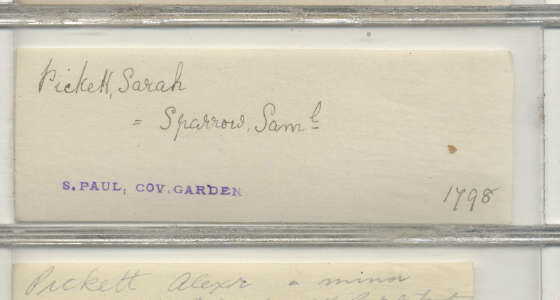 Pickett, Sarah
= Sparrow, Saml
S. PAUL, COV. GARDEN
1798
Pickett Alexr a minor